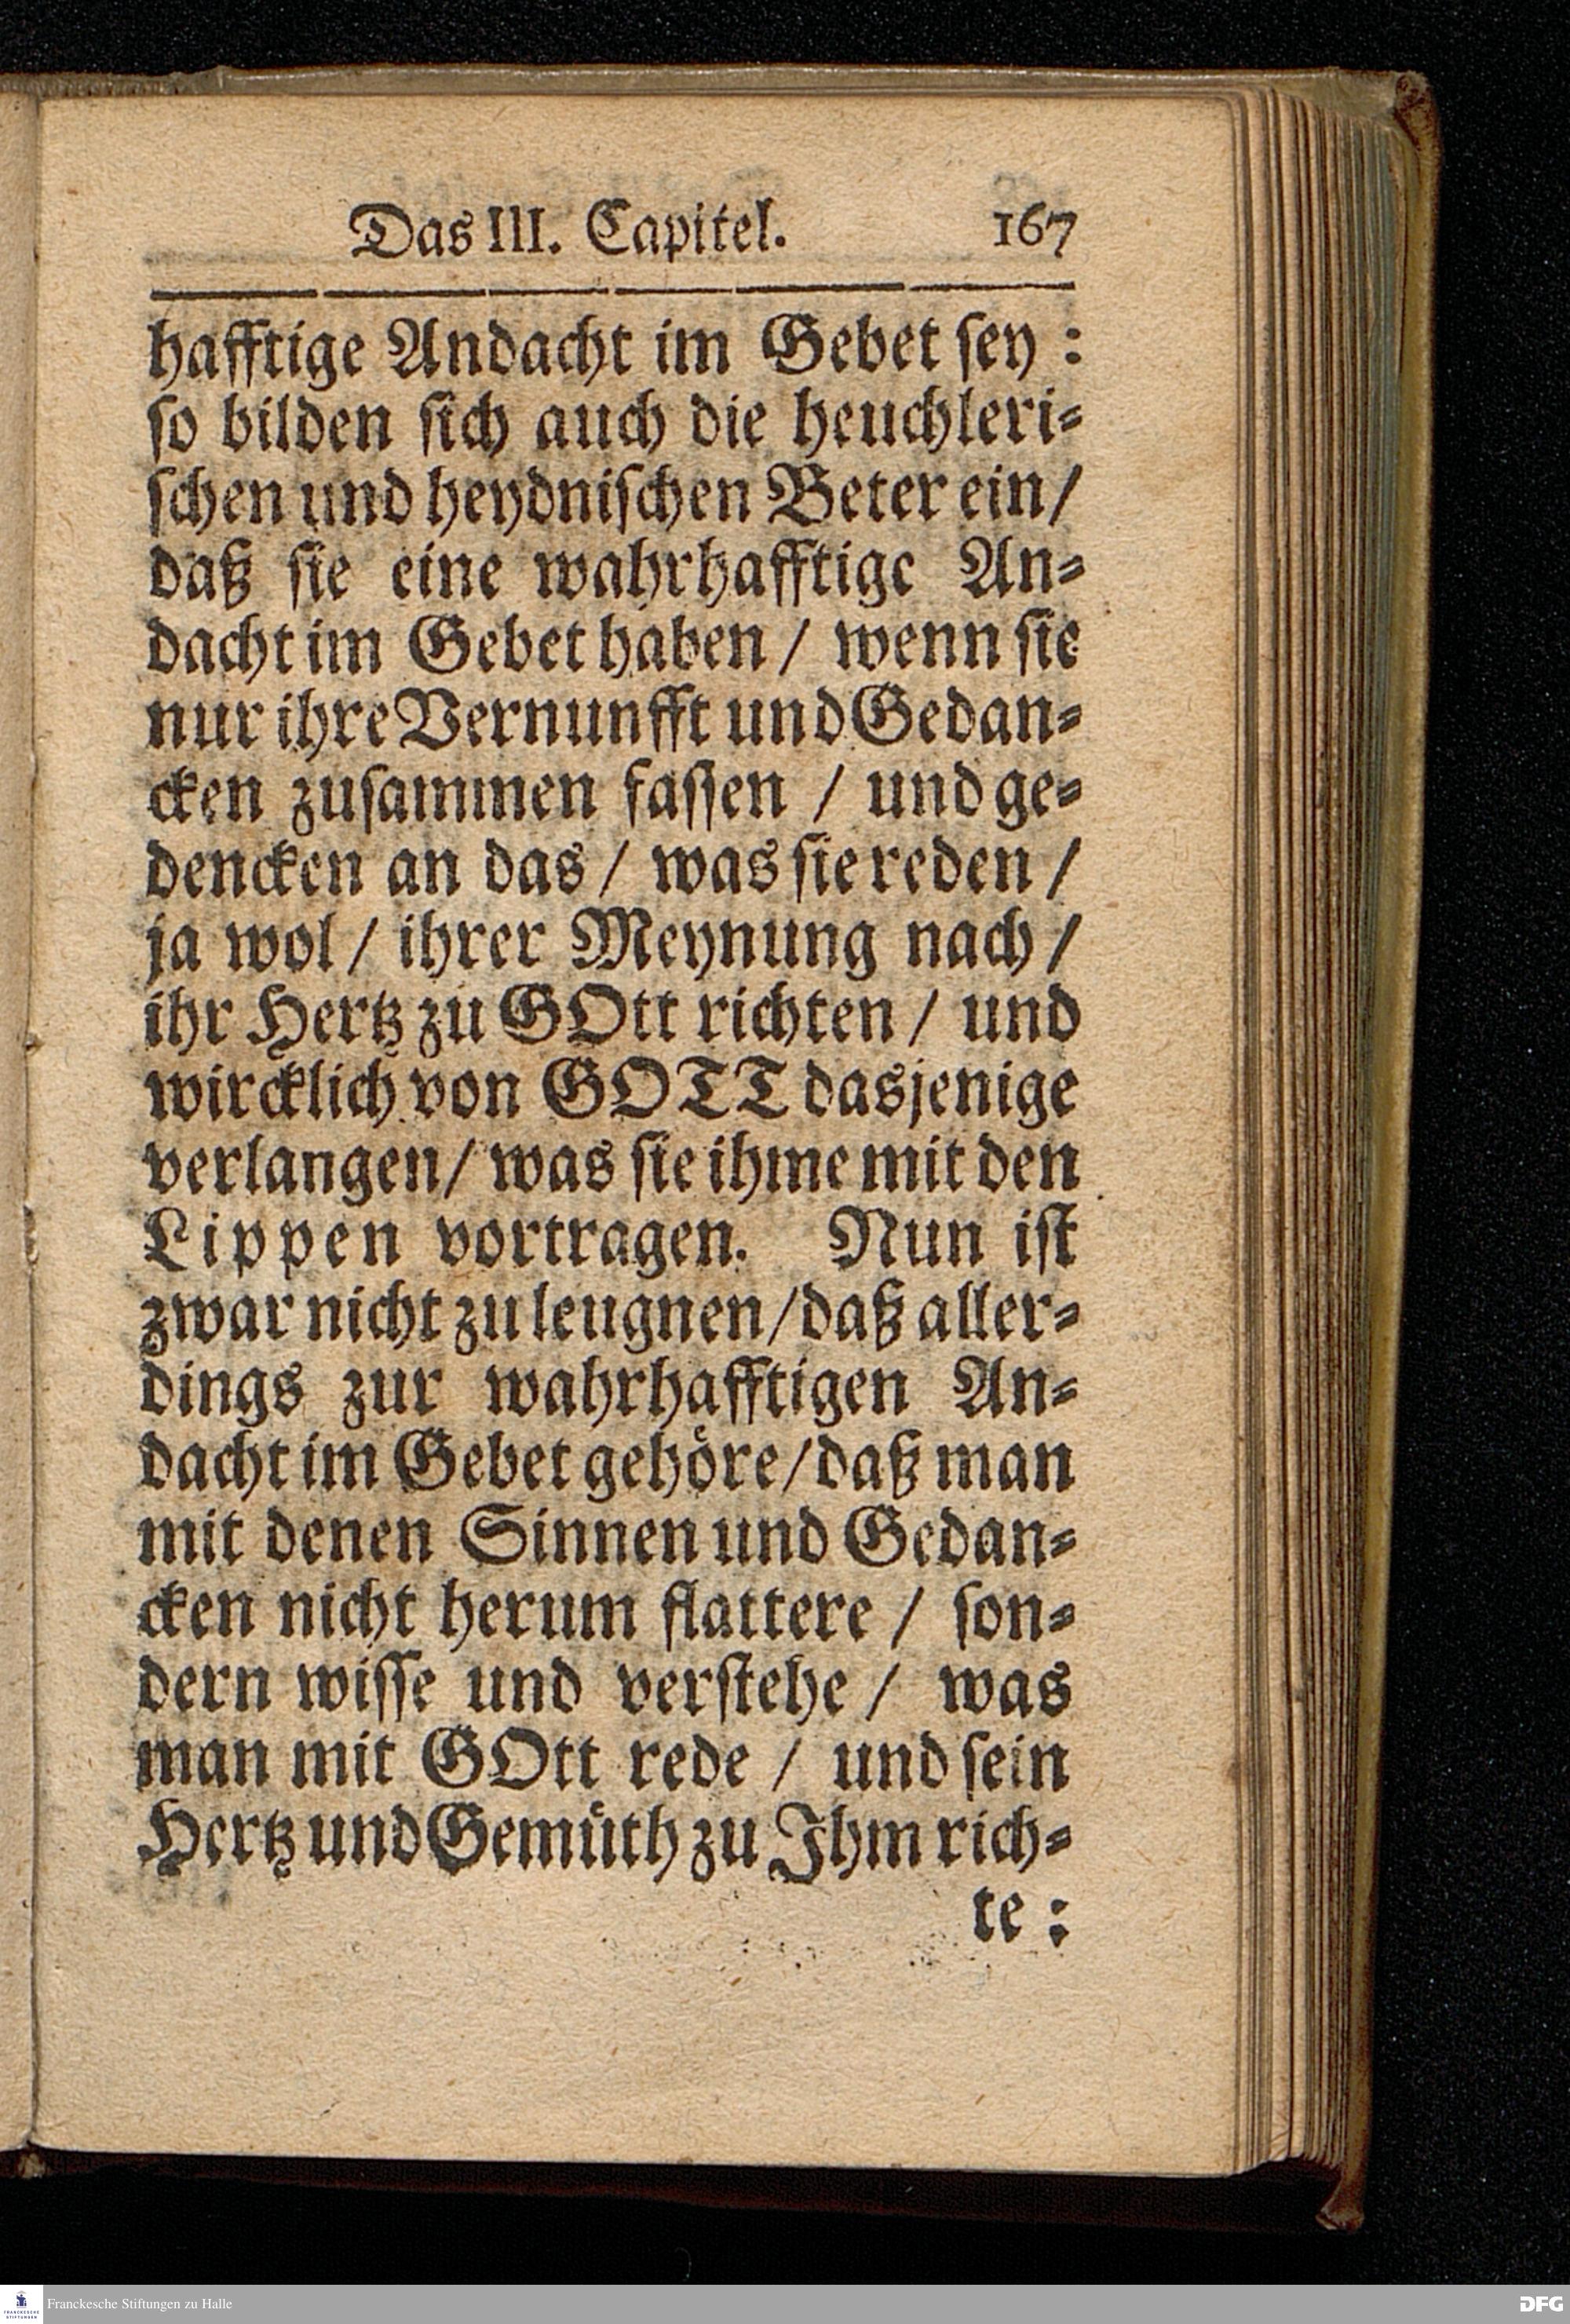 Das III. Capitel. 167
hafftige Andacht im Gebet sey :
so bilden sich auch die heuchleri-
schen und heydnischen Beter ein/
daß sie eine wahrhafftige An-
dacht im Gebet haben / wenn sie
nur ihre Vernunfft und Gedan-
cken zusammen fassen / und ge-
dencken an das / was sie reden /
ja wol / ihrer Meynung nach /
ihr Hertz zu GOtt richten / und
wircklich von GOTT dasjenige
verlangen / was sie ihme mit den
Lippen vortragen. Nun ist
zwar nicht zu leugnen / daß aller-
dings zur wahrhafftigen An-
dacht im Gebet gehöre / daß man
mit denen Sinnen und Gedan-
cken nicht herum flattere / son-
dern wisse und verstehe / was
man mit GOtt rede / und sein
Hertz und Gemüth zu Ihm rich-
te :
FRANCKESCHE STIFTUNGEN
Franckesche Stiftungen zu Halle
DFG